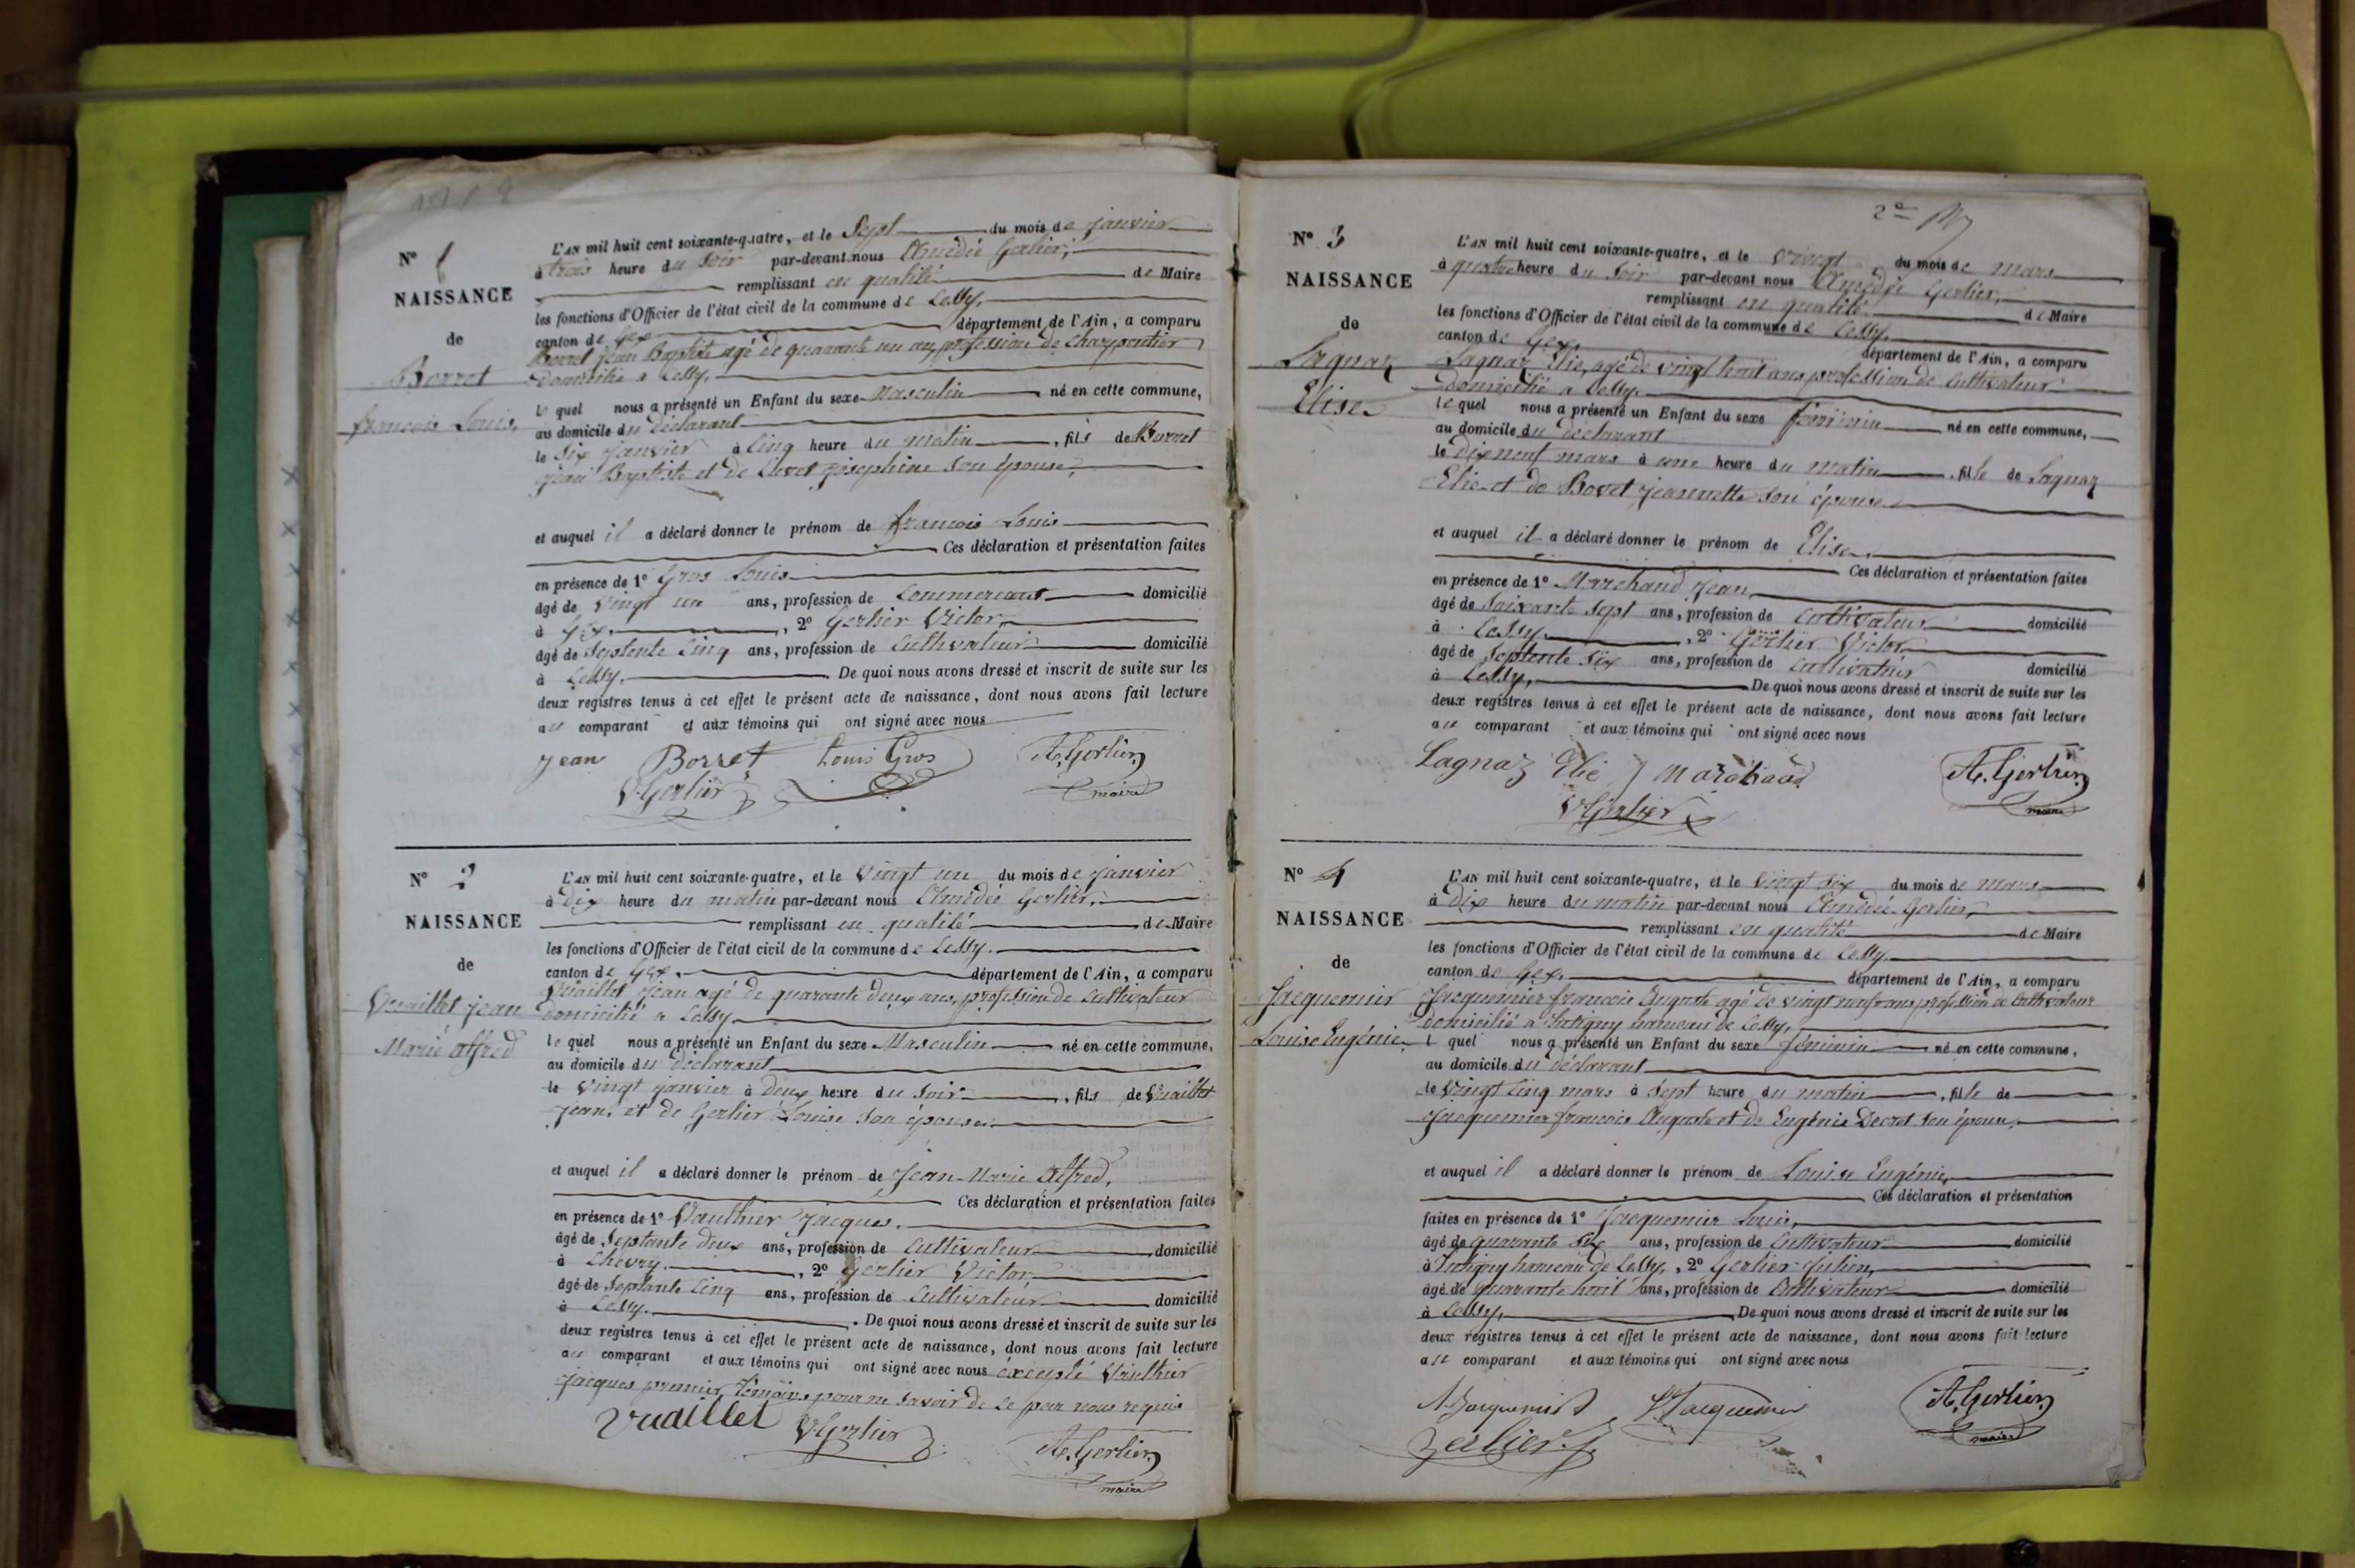 N° 1
NAISSANCE
de
Borret
françois Louis,
L'AN mil huit cent soixante-quatre, et le Sept du mois de janvier
à trois heure du soir par-devant nous Amédée Gerlier,
remplissant en qualité de Maire
les fonctions d'Officier de l'état civil de la commune de Cessy,
canton de Gex département de l'Ain, a comparu
Borret Jean Baptiste agé de quarante un an, profession de Charpentier
domicilié a Cessy,
le quel nous a présenté un Enfant du sexe Masculin né en cette commune,
au domicile du déclarant
le Six janvier à Cinq heure du matin, fils de Borret
Jean Baptiste et de joséphine son épouse,
et auquel il a déclaré donner le prénom de françois Louis
Ces déclaration et présentation faites
en présence de 1° Gros Louis
âgé de Vingt un ans, profession de Commercant domicilié
à Gex, 2° Gerlier Victor,
âgé de Septente Cinq ans, profession de Cultivateur domicilié
à Cessy, De quoi nous avons dressé et inscrit de suite sur les
deux registres tenus à cet effet le présent acte de naissance, dont nous avons fait lecture
au comparant et aux témoins qui ont signé avec nous
Jean Borret Louis Gros A. Gerlier
V Gerlier maire
N° 2
NAISSANCE
de
Vuaillet jean
Marie alfred
L'AN mil huit cent soixante-quatre, et le Vingt un du mois de janvier
à dix heure du matin par-devant nous Amédée Gerlier,
remplissant en qualité de Maire
les fonctions d'Officier de l'état civil de la commune de Cessy.
canton de Gex, département de l'Ain, a comparu
Vuaillet Jean agé de quarante deux ans, profession de Cultivateur
domicilié a Cessy
le quel nous a présenté un Enfant du sexe Masculin né en cette commune,
au domicile du déclarant
le Vingt janvier à deux heure du soir, fils de Vuaillet
Jean, et de Gerlier Louise son épouse
et auquel il a déclaré donner le prénom de Jean Marie Alfred,
Ces déclaration et présentation faites
en présence de 1° Vauthier Jacques.
âgé de Septante deux ans, profession de Cultivateur domicilié
à Chevry, 2° Gerlier Victor,
âgé de Septante Cinq ans, profession de Cultivateur domicilié
à Cessy. De quoi nous avons dressé et inscrit de suite sur les
deux registres tenus à cet effet le présent acte de naissance, dont nous avons fait lecture
au comparant et aux témoins qui ont signé avec nous éxcepté Vauthier
Jacques premier témoins pour ne savoir de ce par nous requis
Vuaillet V Gerlier A. Gerlier
maire
N° 3
NAISSANCE
de
Lagnaz
Elise
L'AN mil huit cent soixante-quatre, et le vingt du mois de mars
à quatre heure du Soir par-devant nous Amédée Gerlier,
remplissant en qualité de Maire
les fonctions d'Officier de l'état civil de la commune de Cessy,
canton de Gex, département de l'Ain, a comparu
Lagnaz Elie, agé de vingt huit ans profession de Cultivateur
domicilié a Cessy
le quel nous a présenté un Enfant du sexe féminin né en cette commune,
au domicile du déclarant
le dix neuf mars à une heure du matin, fille de Lagnaz
Elie et de Bovet Jeannette son épouse
et auquel il a déclaré donner le prénom de Elise
Ces déclaration et présentation faites
en présence de 1° Marchand Jean,
âgé de Soixante Sept ans, profession de Cultivateur domicilié
à Cessy, 2° Gerlier Victor
âgé de Septente Six ans, profession de Cultivateur domicilié
à Cessy, De quoi nous avons dressé et inscrit de suite sur les
deux registres tenus à cet effet le présent acte de naissance, dont nous avons fait lecture
au comparant et aux témoins qui ont signé avec nous
Lagnaz Elie J Marchand A. Gerlier
V Gerlier maire
N° 4
NAISSANCE
de
Jacquemier
Louise Eugénie,
L'AN mil huit cent soixante-quatre, et le Vingt Six du mois de mars
à Dix heure du matin par-devant nous Amédée Gerlier,
remplissant en qualité de Maire
les fonctions d'Officier de l'état civil de la commune de Cessy,
canton de Gex, département de l'Ain, a comparu
Jacquemier françois Auguste agé de vingt neuf ans profession de Cultivateur
domicilié a hameau de Cessy,
l quel nous a présenté un Enfant du sexe féminin né en cette commune,
au domicile du déclarant
le Vingt Cinq mars à Sept heure du matin, fille de
Jacquemier françois Auguste et de Eugénie Decret son épouse,
et auquel il a déclaré donner le prénom de Louise Eugénie,
Ces déclaration et présentation
faites en présence de 1° Jacquemier Louis,
âgé de quarante Six ans, profession de Cultivateur domicilié
à hameau de Cessy, 2° Gerlier Julien,
âgé de quarante huit ans, profession de Cultivateur domicilié
à Cessy, De quoi nous avons dressé et inscrit de suite sur les
deux registres tenus à cet effet le présent acte de naissance, dont nous avons fait lecture
au comparant et aux témoins qui ont signé avec nous
A. Jacquemier L. Jacquemier A. Gerlier
Gerlier J. maire